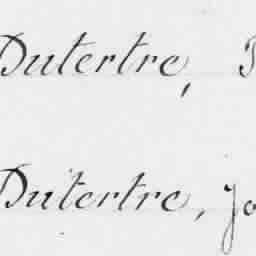 Dutertre,
Dutertre, Jo